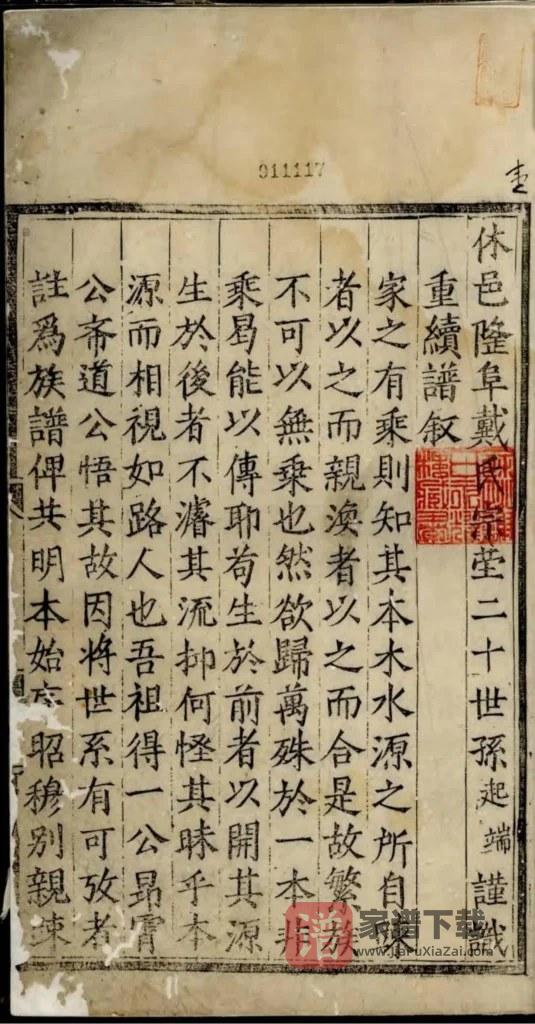 休邑隆阜戴氏宗塋二十世孫起端謹識
重續譜叙
家之有乘則知其本木水源之所自疎
者以之而親渙者以之而合是故繁族
不可以無乗也然欲歸萬殊於一本非
乘曷能以傳耶苟生於前者以開其源
生於後者不濬其流抑何怪其昧乎本
源而相視如路人也吾祖得一公昴霄
公斋道公悟其故因將世系有可攷者
註爲族譜俾共明本始序昭穆别親疎
011117
家谱下载
www.JiaPuXiaZai.com